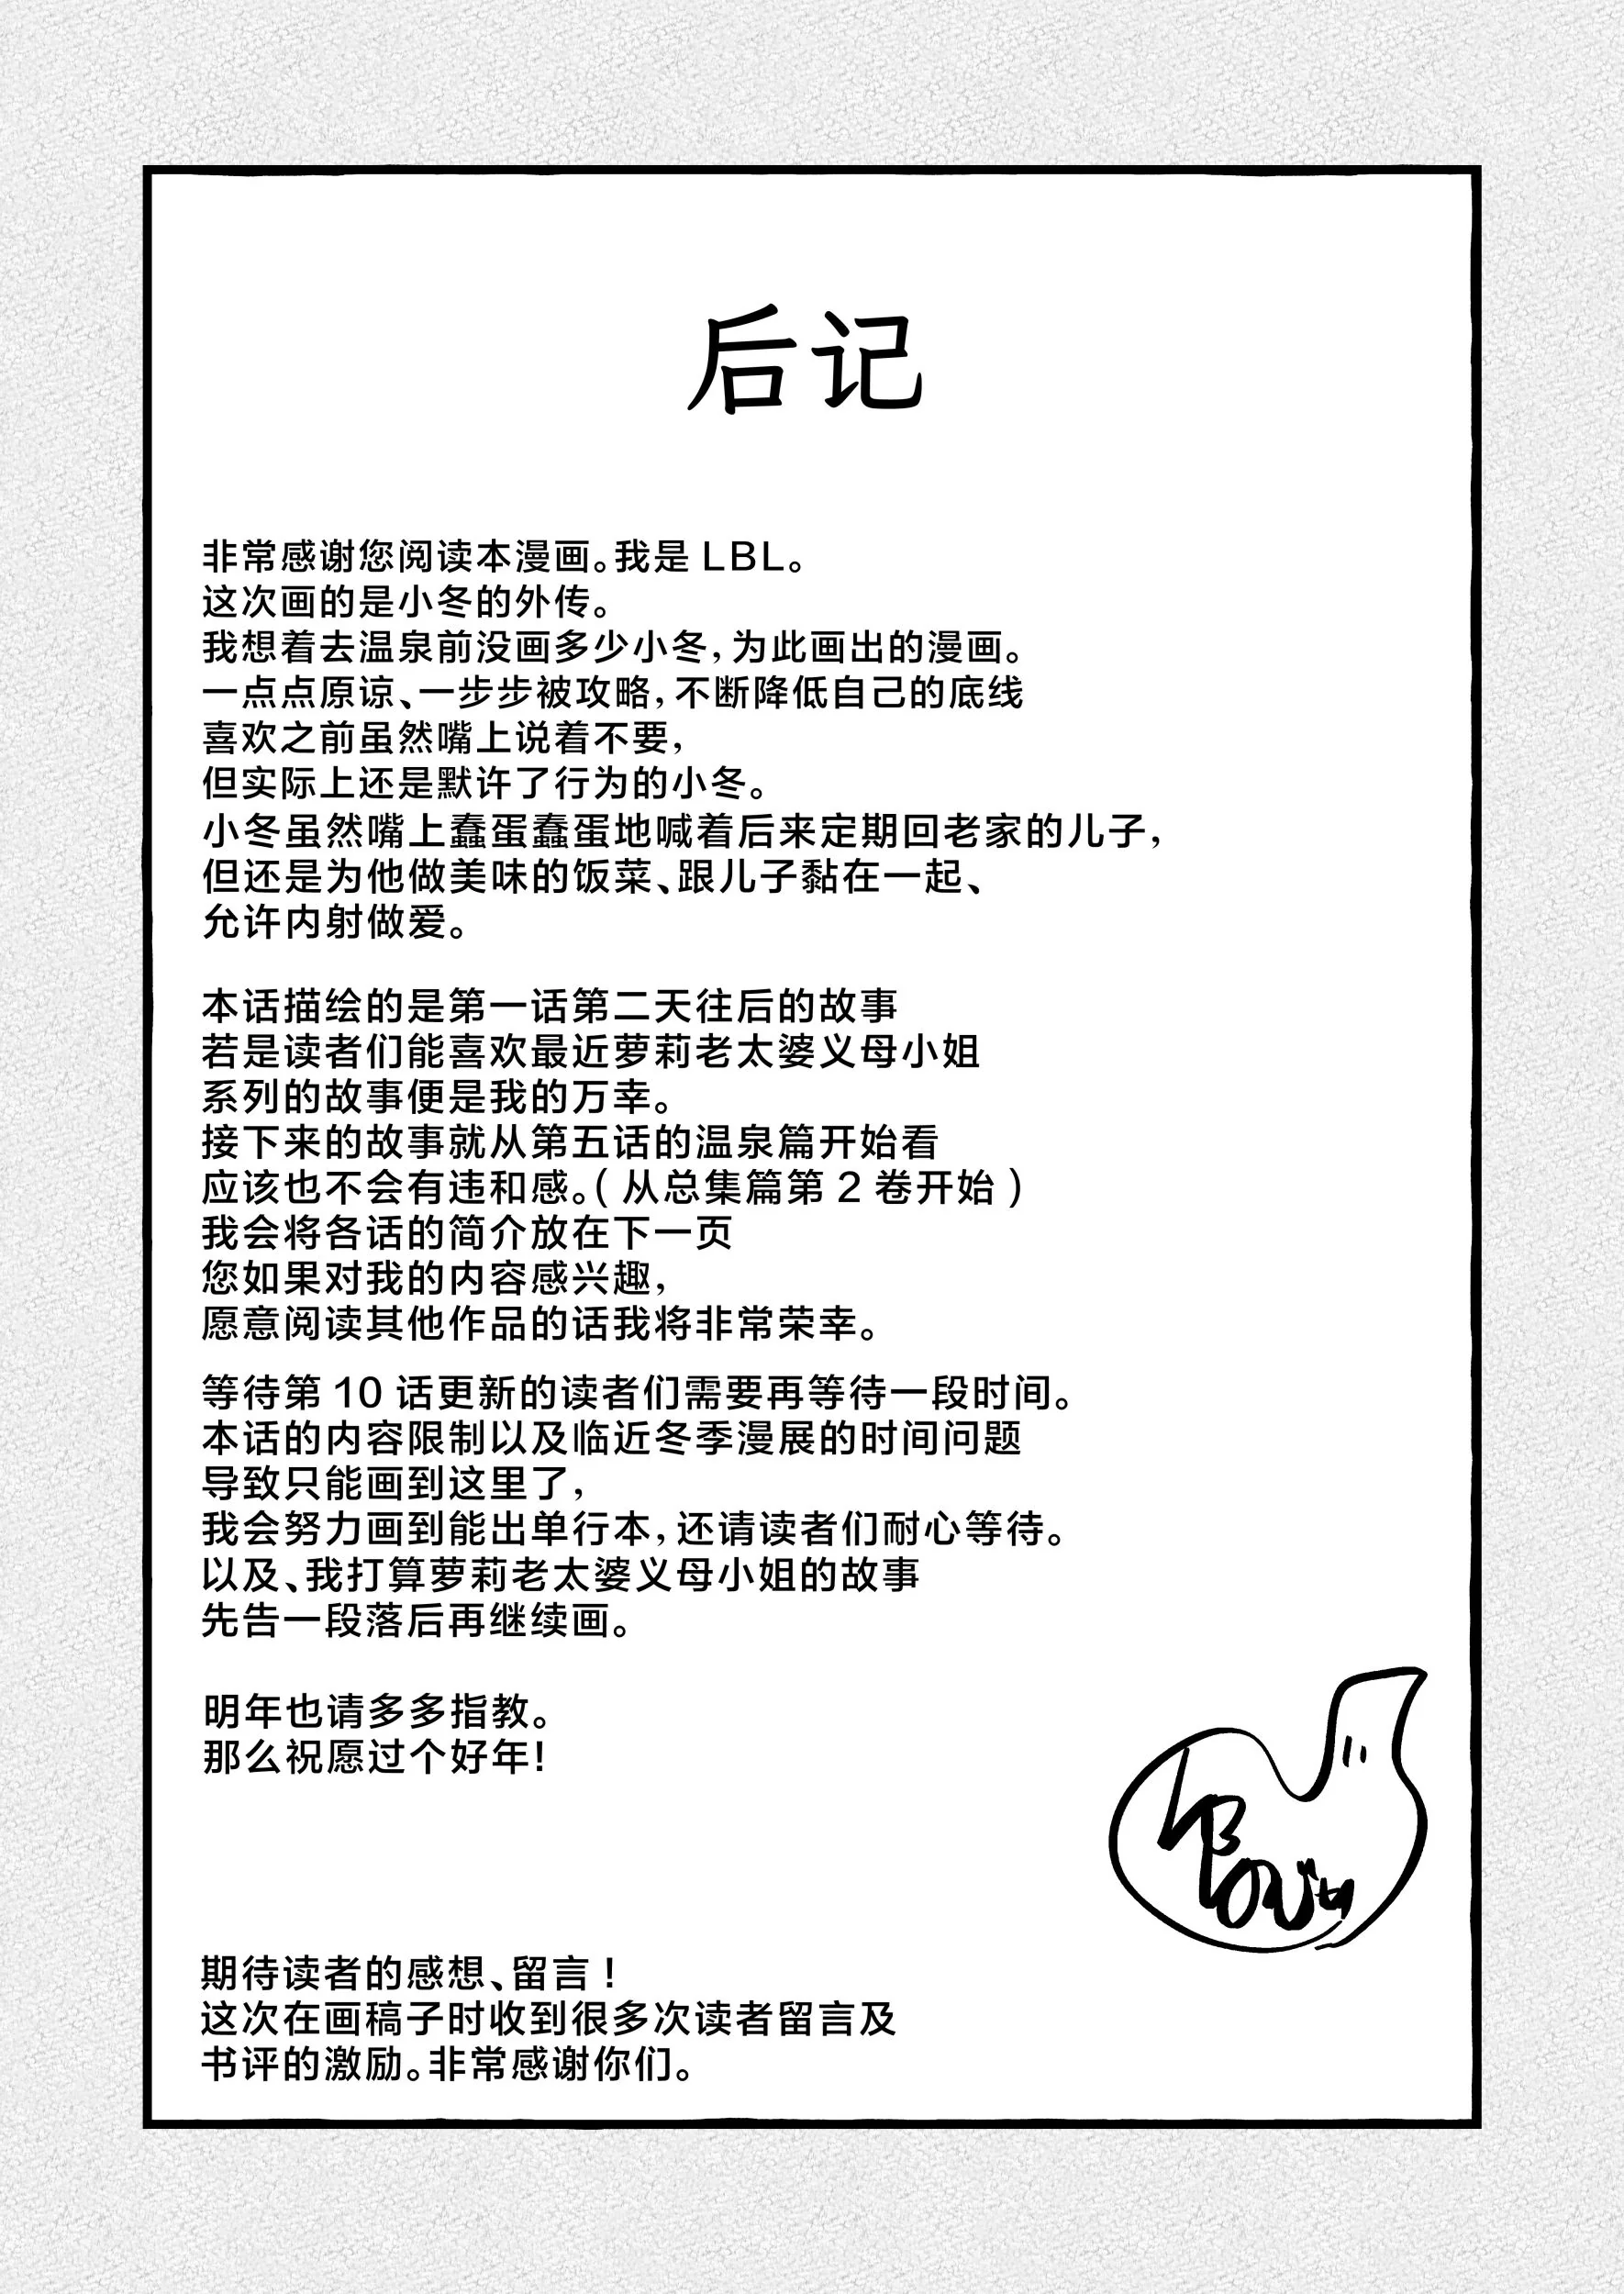 后记
非常感谢您阅读本漫画。我是 LBL。
这次画的是小冬的外传。
我想着去温泉前没画多少小冬，为此画出的漫画。
一点点原谅、一步步被攻略，不断降低自己的底线
喜欢之前虽然嘴上说着不要，
但实际上还是默许了行为的小冬。
小冬虽然嘴上蠢蛋蠢蛋地喊着后来定期回老家的儿子，
但还是为他做美味的饭菜、跟儿子黏在一起、
允许内射做爱。
本话描绘的是第一话第二天往后的故事
若是读者们能喜欢最近萝莉老太婆义母小姐
系列的故事便是我的万幸。
接下来的故事就从第五话的温泉篇开始看
应该也不会有违和感。( 从总集篇第 2 卷开始 )
我会将各话的简介放在下一页
您如果对我的内容感兴趣，
愿意阅读其他作品的话我将非常荣幸。
等待第 10 话更新的读者们需要再等待一段时间。
本话的内容限制以及临近冬季漫展的时间问题
导致只能画到这里了，
我会努力画到能出单行本，还请读者们耐心等待。
以及、我打算萝莉老太婆义母小姐的故事
先告一段落后再继续画。
明年也请多多指教。
那么祝愿过个好年！
期待读者的感想、留言！
这次在画稿子时收到很多次读者留言及
书评的激励。非常感谢你们。